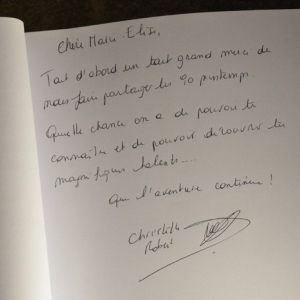 Chère Marie Elise,
Tout d'abord un tout grand merci de
nous faire partager tes 90 printemps.
Quelle chance on a de pouvoir te
connaître et de pouvoir découvrir tes
magnifiques talents....
Que l'aventure continue !
Robert